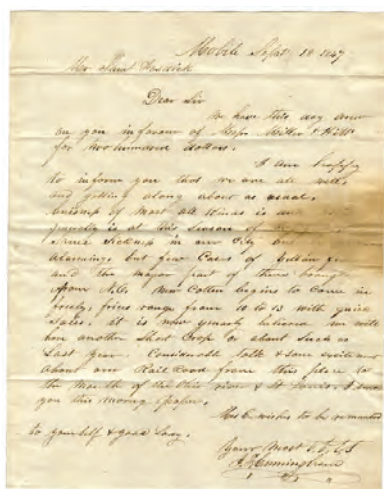 Mobile Sept 18 1847
Mr Saml Fosdick
Dear Sir
We have this day
on you in favour of Messrs Miller & Hill
for two hundred dollars.
I am happy
to inform you that we are all well,
and getting along about as usual.
of most all kinds is
is at this season of
some sickness in our City but
alarming, but few cases of
and the major part of those
from N.O. New Cotton begins to come in
freely, prices range from 10 to 13 with quick
sales. it is now generally believed we will
have another short crop or about such as
last year. Considerable talk & some excitement
about our Rail Road from this place to
the mouth of the Ohio river & St Louis. I send
you this morning paper.
Mrs C. wishes to be remembered
to yourself & good Lady.
Yours Most
Cunningham